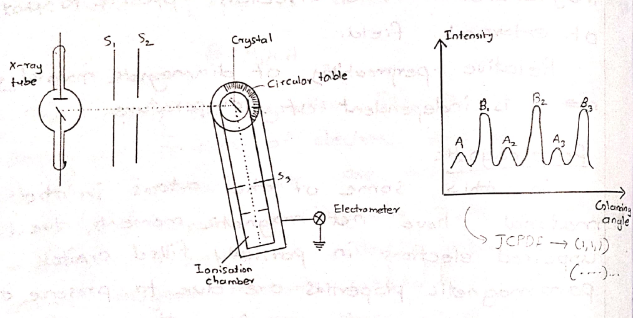 X-ray
tube
S1
S2
Crystal
Circular table
S3
Electrometer
Ionisation
chamber
Intensity
A
B1
A2
B2
A3
B3
angle
JCPDF → (1,1,1)
(.....)...